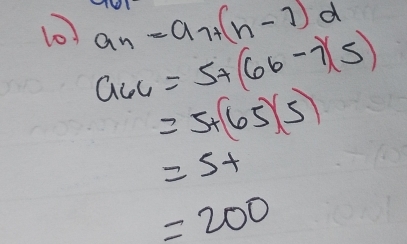 10) an = a1+(n-1)d
a66 = 5+(66-1)(5)
= 5+(65)(5)
= 5+
= 200